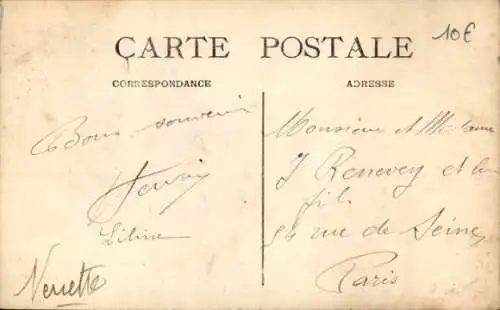 10€
CARTE POSTALE
CORRESPONDANCE
ADRESSE
Bons souvenir
Henri
Liline
Nenette
Monsieur et Madame
J Renevey et leur
fils
94 rue de Seine
Paris